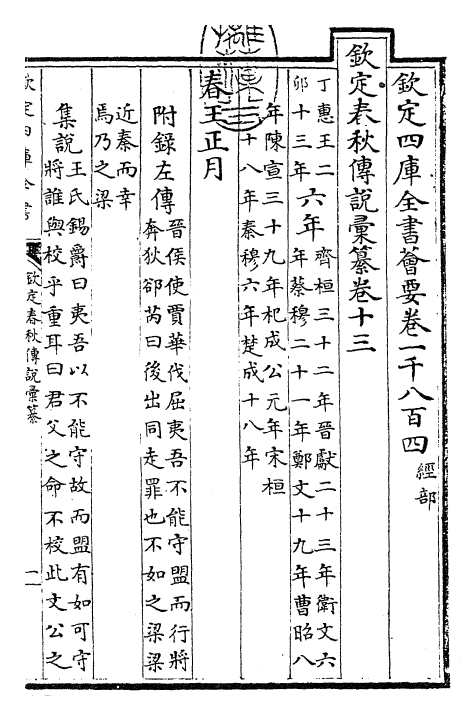 欽定四庫全書薈要卷一千八百四 經部
欽定春秋傳説彙纂卷十三
丁惠王二
卯十三年
六年
齊桓三十二年晉獻二十三年衛文六
年蔡穆二十一年鄭文十九年曹昭八
年陳宣三十九年杞成公元年宋桓
十八年秦穆六年楚成十八年
春王正月
附錄左傳
晉侯使賈華伐屈夷吾不能守盟而行將
奔狄郤芮曰後出同走罪也不如之梁梁
近秦而幸
焉乃之梁
集説
王氏錫爵曰夷吾以不能守故而盟有如可守
將誰與校乎重耳曰君父之命不校此文公之
欽定四庫全書
欽定春秋傳説彙纂
一